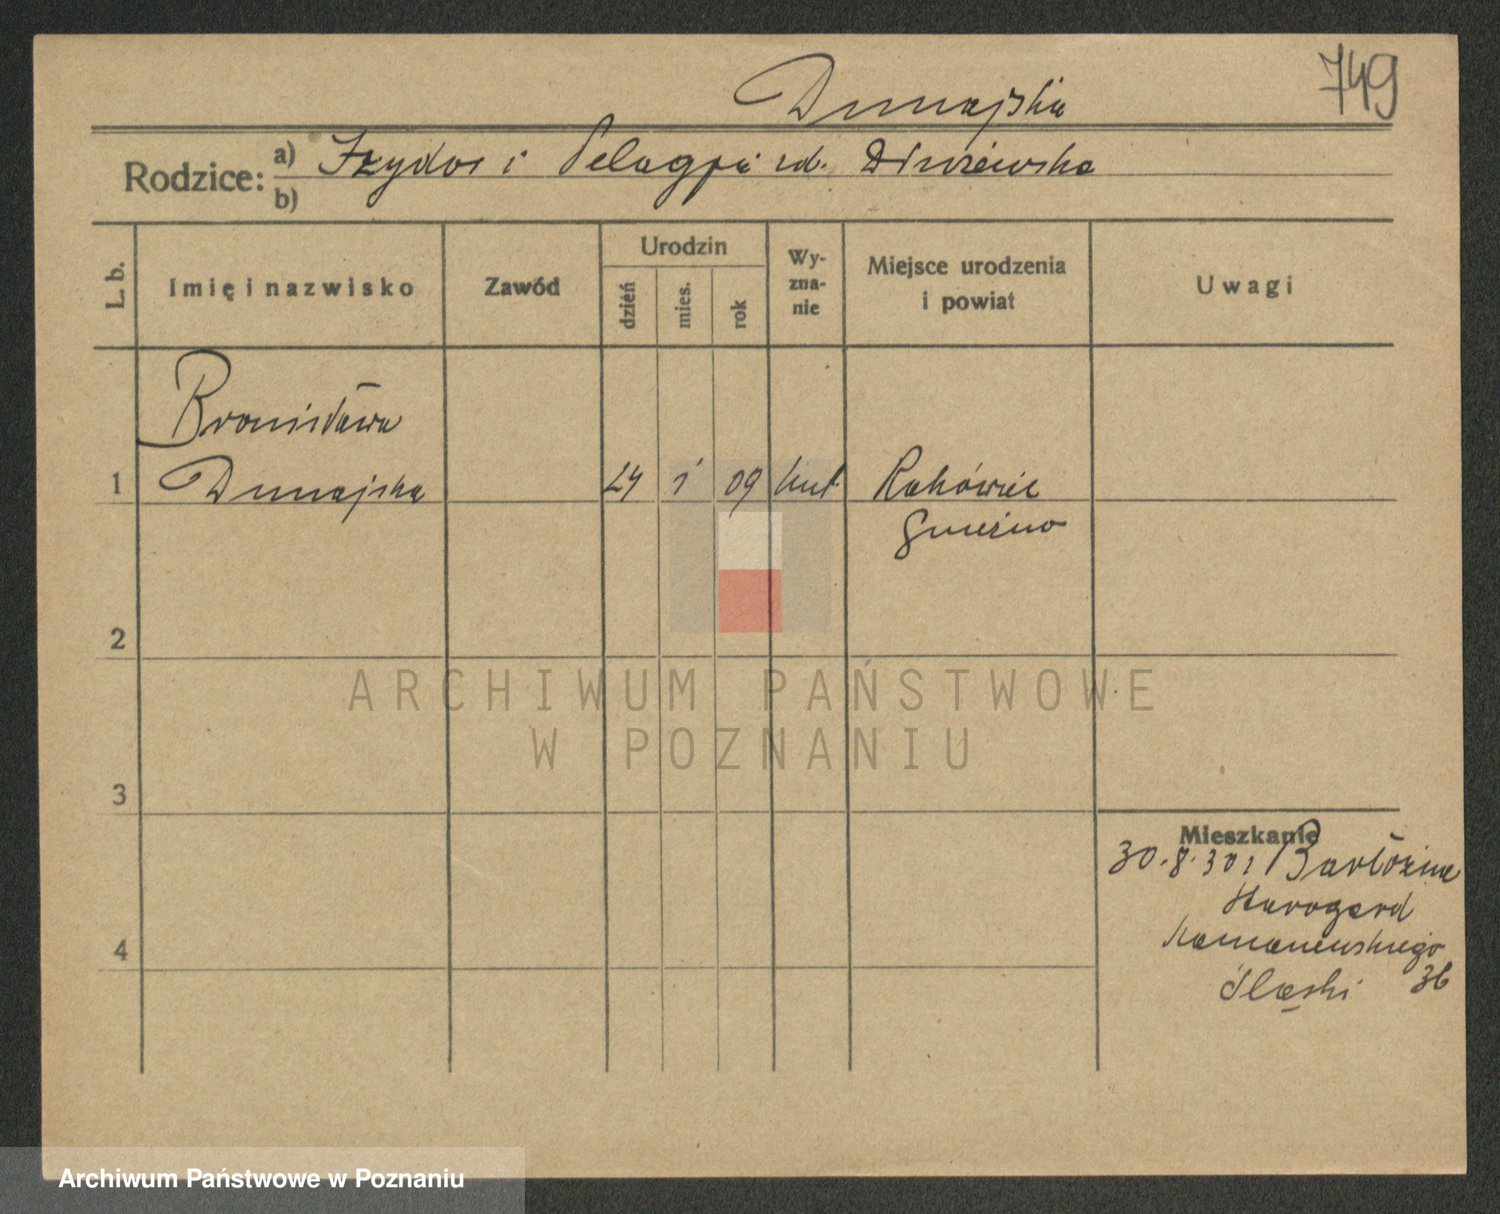 749
Dunajska
Rodzice: a) Izydor i Pelagja zd. Dłużewska
b)
L. b.
Imię i nazwisko
Zawód
Urodzin
dzień
mies.
rok
Wy-
zna-
nie
Miejsce urodzenia
i powiat
Uwagi
Bronisława
1 Dunajska 24 1 09 kat. Rakówiec
Gniezno
2
3
4
Mieszkanie
30.8.30 Bartłózina
Starogard
36
Śląski
ARCHIWUM PAŃSTWOWE
W POZNANIU
Archiwum Państwowe w Poznaniu